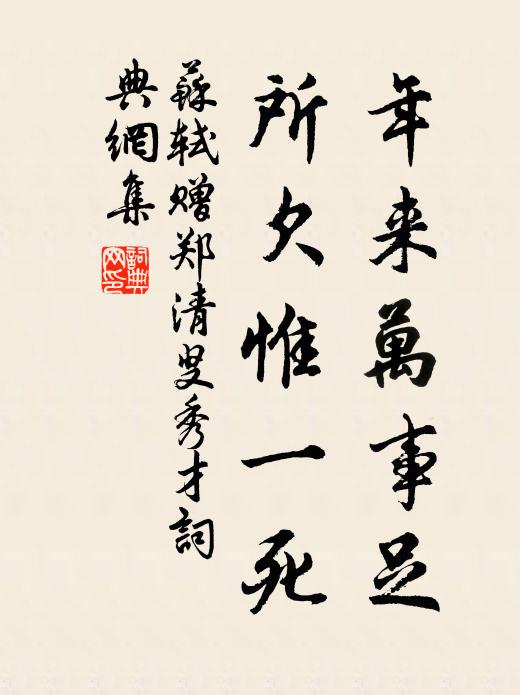 年来萬事足
所欠惟一死
蘇軾赠郑清叟秀才詞
典網集
詞典
网印